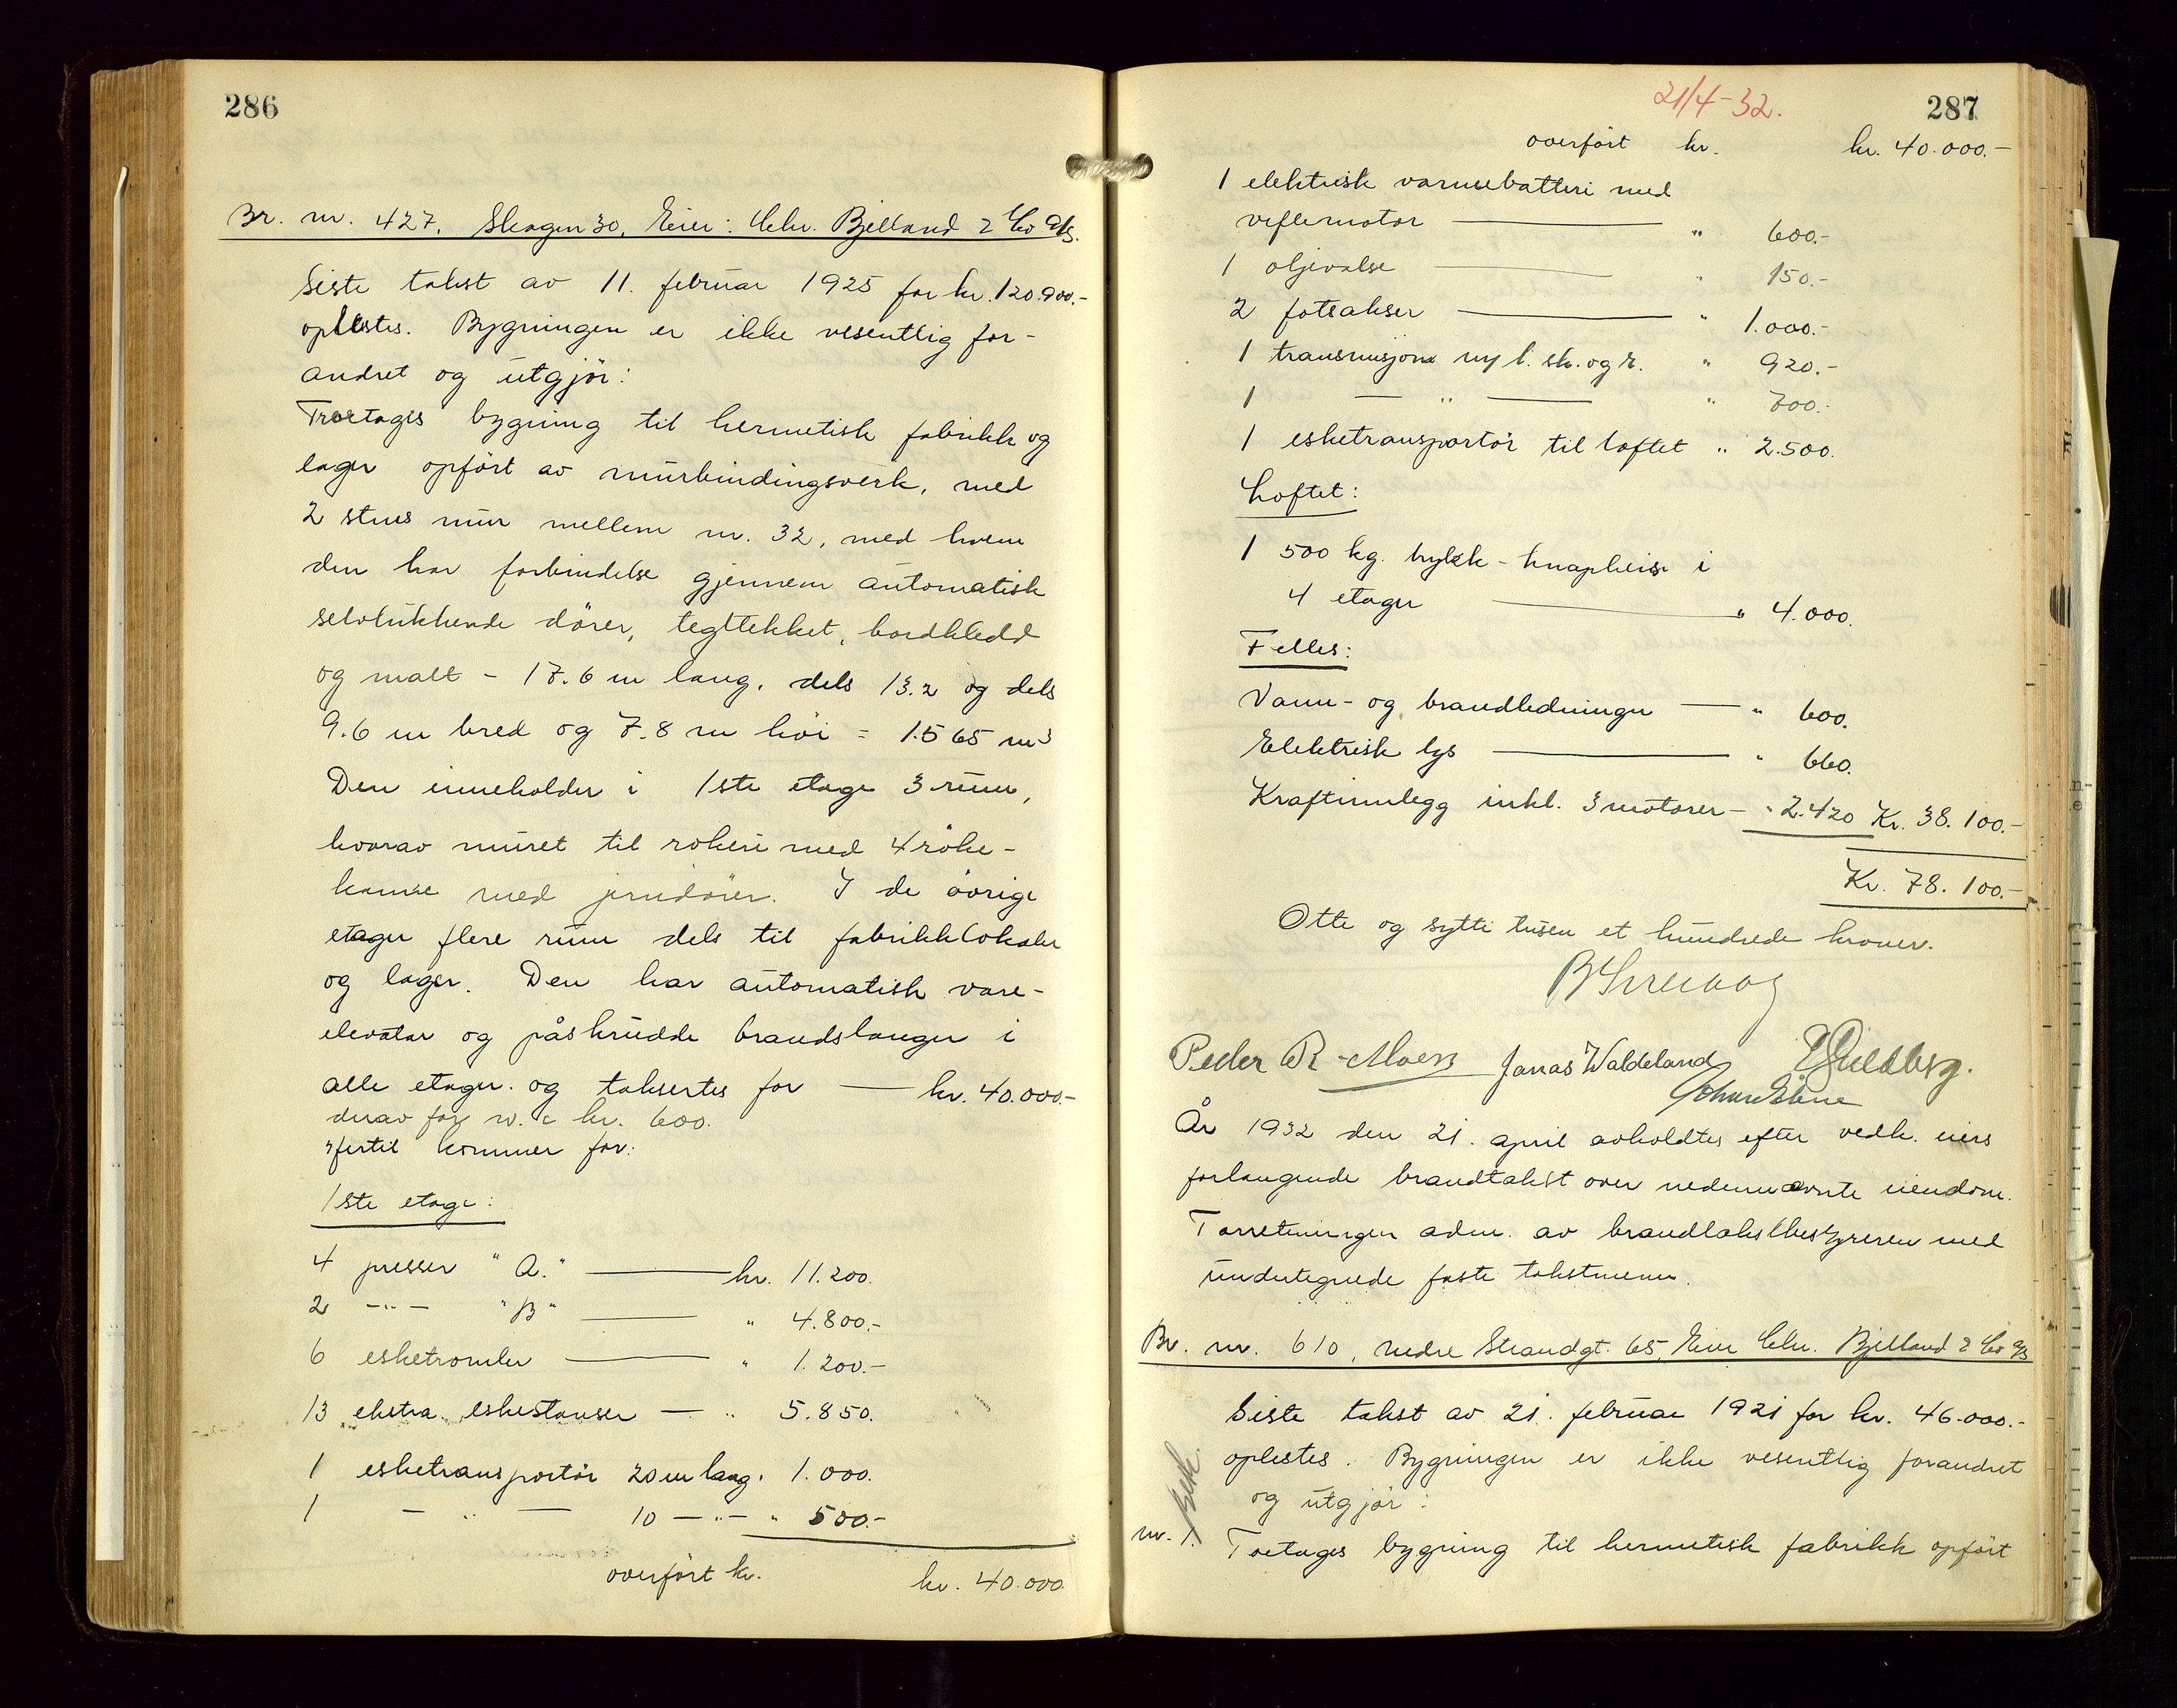 286
Br. nr. 427. Skagen 30. Eier: Chr. Bjelland & Co A/s.
Siste takst av 11. februar 1925 for kr. 120.900.-
oplestes. Bygningen er ikke vesentlig for-
andret og utgjör:
Treetages bygning til hermetisk fabrikk og
lager opfört av murbindingsverk, med
2 stens mur mellem nr. 32, med hvem
den har forbindelse gjennem automatisk
selvlukkende dörer, tegltekket, bordkledd
og malt - 17.6 m lang, dels 13.2 og dels
9.6 m bred og 7.8 m höi = 1.565 m³
Den inneholder i 1ste etage 3 rum,
hvorav muret til rökeri med 4 röke-
kamre med jerndörer. I de övrige
etager flere rum dels til fabrikklokaler
og lager. Den har automatisk vare-
elevator og påskrudde brandslanger i
alle etager. og takseres for — kr. 40.000.-
derav for w.c kr. 600.
Hertil kommer for:
1ste etage:
4 presser "A." — kr. 11.200.
2 -"- "B" — " 4.800.-
6 esketromler — " 1.200.-
13 ekstra eskestanser — " 5.850.
1 esketransportör 20 m lang " 1.000.
1 — " — 10 — " — " 500.-
overfört kr. kr. 40.000
21/4-32.
287
overfört kr. kr. 40.000.-
1 elektrisk varmebatteri med
viftemotor — " 600.-
1 oljevalse — " 150.-
2 fotsakser — " 1.000.-
1 transmisjon ny l. sk. og r. " 920.-
1 — " — " 700.-
1 esketransportör til loftet " 2.500.
Loftet:
1 500 kg. trykk-knapheis i
4 etager — " 4.000.
Felles:
Vann- og brandledninger — " 600.
Elektrisk lys — " 660.
Kraftinnlegg inkl. 3 motorer — " 2.420 Kr. 38.100.-
Kr. 78.100.-
Otte og sytti tusen et hundrede kroner.
Peder R. Moen Jonas Waldeland
År 1932 den 21. april avholdtes efter vedk. eiers
forlangende brandtakst over nedennevnte eiendom.
Forretningen adm. av brandtakstbestyreren med
undertegnede faste takstmenn.
Br. nr. 610, nedre Strandgt. 65, Eier Chr. Bjelland & Co A/s
Siste takst av 21. februar 1921 for kr. 46.000.-
oplestes. Bygningen er ikke vesentlig forandret
og utgjör:
nr. 1. Toetages bygning til hermetisk fabrikk opfört